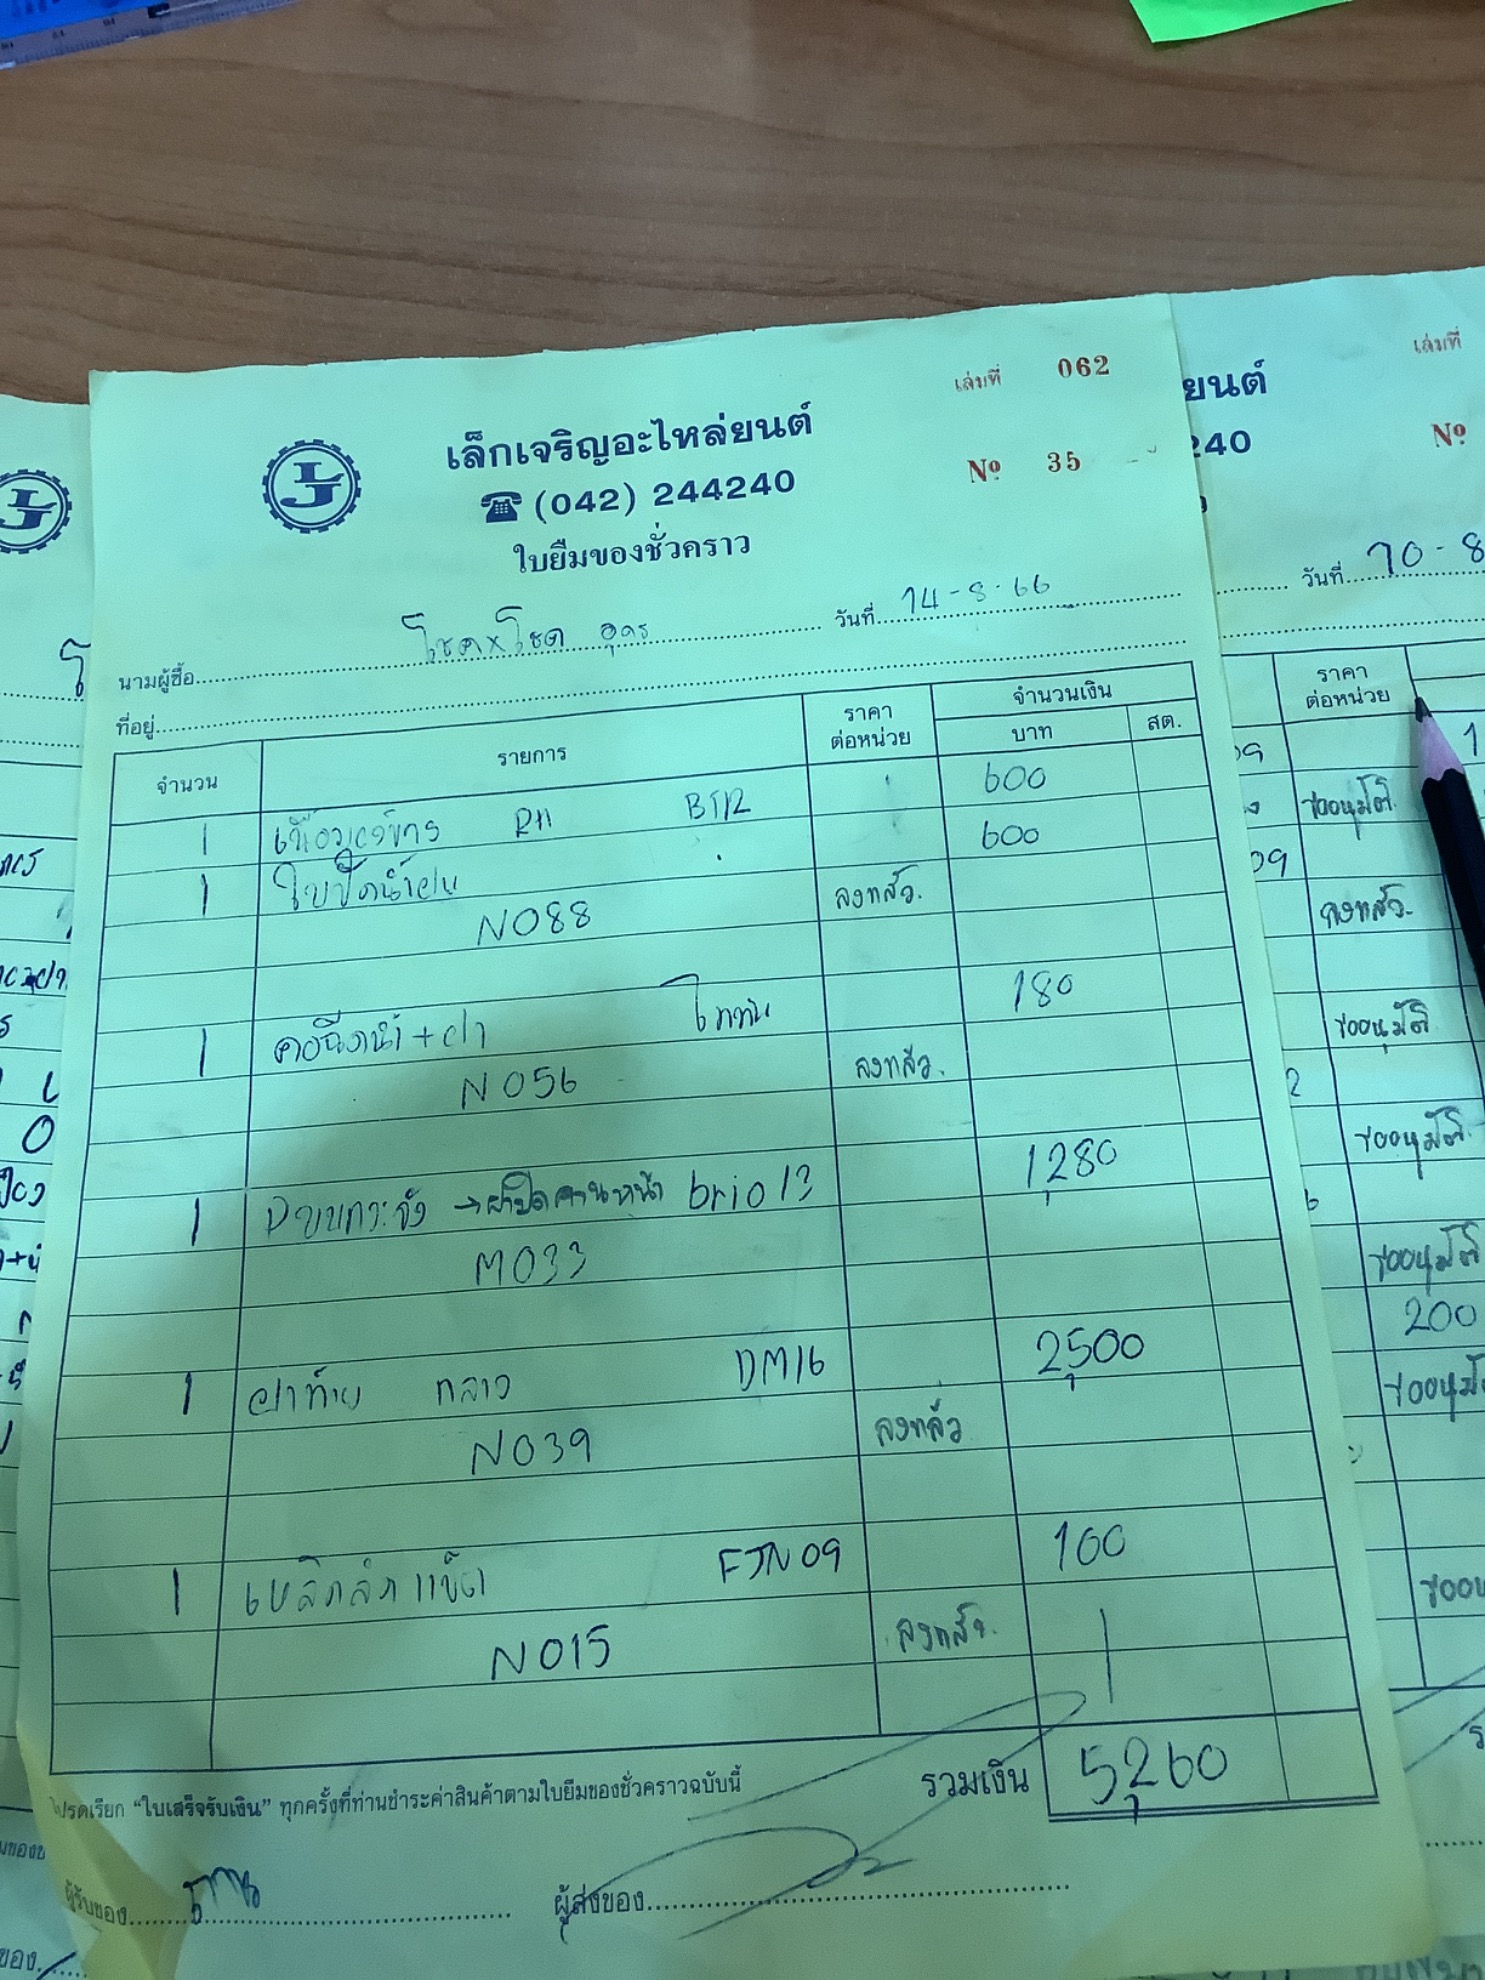 เล่มที่ 062
เล็กเจริญอะไหล่ยนต์
Nº 35
☎ (042) 244240
ใบยืมของชั่วคราว
นามผู้ซื้อ โชคxโชค อุดร วันที่ 14-8-66
ที่อยู่
จำนวน รายการ ราคาต่อหน่วย จำนวนเงิน
บาท สต.
1 RH BT12 600
1 ใบปัดน้ำฝน 600
N088 ลงแล้ว.
1 คอฉีดน้ำ+ฝา ไททัน 180
N056 ลงแล้ว.
1 → ฝาปิดคานหน้า brio 13 1,280
M033
1 ฝาท้าย กลาง DM16 2,500
N039 ลงแล้ว
1 เหล็กล๊กแบ็ต FJN09 100
N015 ลงแล้ว.
โปรดเรียก "ใบเสร็จรับเงิน" ทุกครั้งที่ท่านชำระค่าสินค้าตามใบยืมของชั่วคราวฉบับนี้
รวมเงิน 5,260
ผู้รับของ ผู้ส่งของ
เล่มที่
ยนต์
Nº
240
วันที่ 10-8
ราคาต่อหน่วย
09
ขออนุมัติ.
09
ลงแล้ว.
ขออนุมัติ
2
ขออนุมัติ.
6
ขออนุมัติ
200
ขออนุมั
ขออน